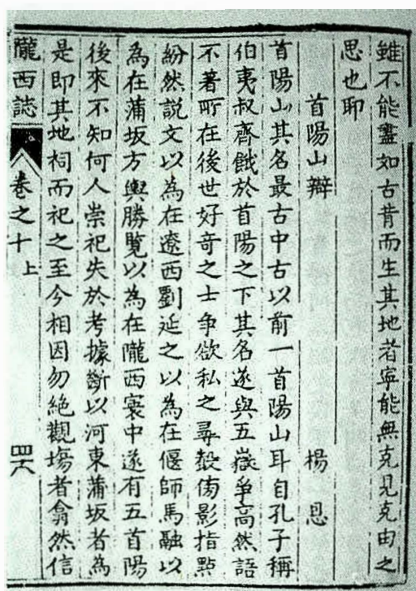 雖不能盡如古昔而生其地者寧能無克見克由之
思也耶
首陽山辯 楊恩
首陽山其名最古中古以前一首陽山耳自孔子稱
伯夷叔齊餓於首陽之下其名遂與五嶽爭高然語
不著所在後世好奇之士爭欲私之尋殼傋影指點
紛然説文以為在遼西劉延之以為在偃師馬融以
為在蒲坂方輿勝覽以為在隴西寰中遂有五首陽
後來不知何人崇祀失於考據斷以河東蒲坂者為
是即其地祠而祀之至今相因勿絕觀塲者翕然信
隴西誌 卷之十上 四六